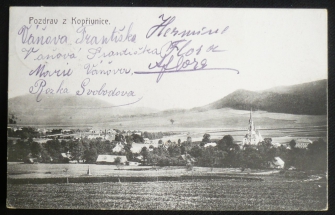 Pozdrav z Kopřivnice.
Váňova Františka
Vaňová Františka
Marie Váňova
Rozka Svobodova
Hermine